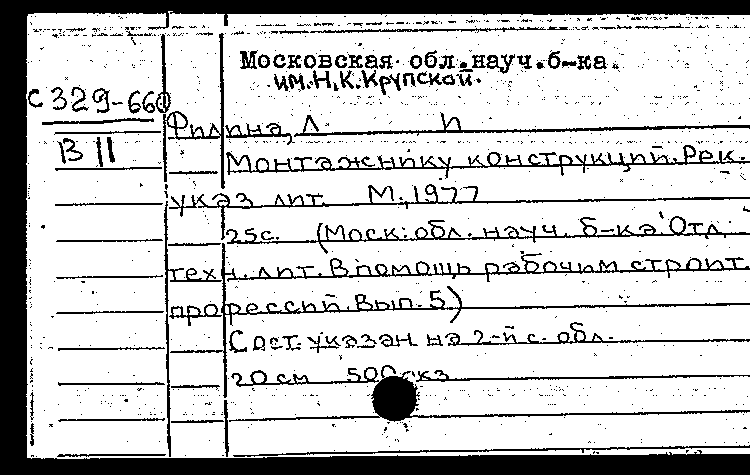 Московская обл.науч.б-ка.
им.Н.К.Крупской.
С329-660
В II
Филина, Л. И
Монтажнику конструкций. Рек.
указ лит. М., 1977
25с. (Моск. обл. науч. б-ка. Отл
техн. лит. В помощь рабочим строит.
профессий. Вып. 5)
Сост. указан на 2-й с. обл.
20 см 500 экз